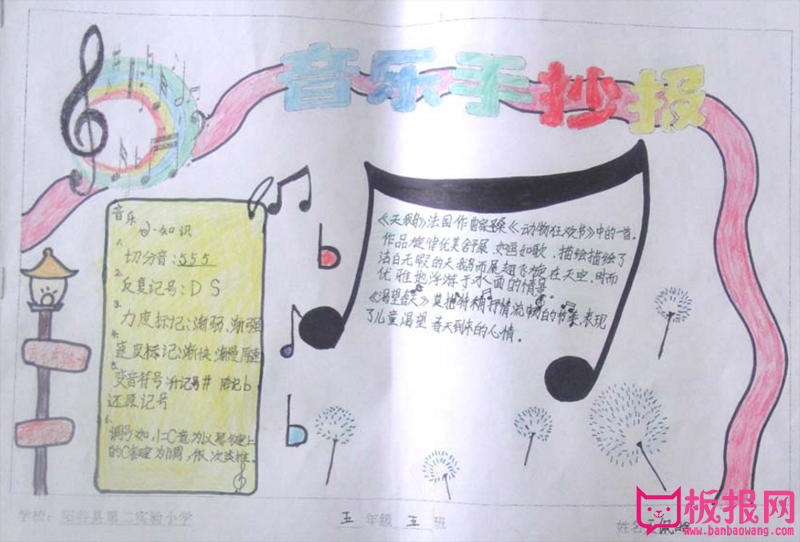 音乐手抄报
音乐
小知识
1.
切分音:5 5 5
2.
反复记号:D S
3.
力度标记:渐弱.渐强
4.
速度标记:渐快.渐慢.原速
5.
变音符号 升记号# 降记b
还原记号
6.
调号如,1=C意为以琴键上
的C键为1调,依次类推.
《天鹅》法国作曲家圣桑《动物狂欢节》中的一首.
作品旋律优美舒展,如画如歌,描绘描绘了
洁白无暇的天鹅而展翅飞旋在天空,时而
优雅地浮游于水面的情景.
《渴望春天》
抒情流畅的节奏,表现
了儿童渴望 春天到来的心情.
学校: 阳谷县第二实验小学
五 年级 五 班
姓名
板报网
www.banbaowang.com